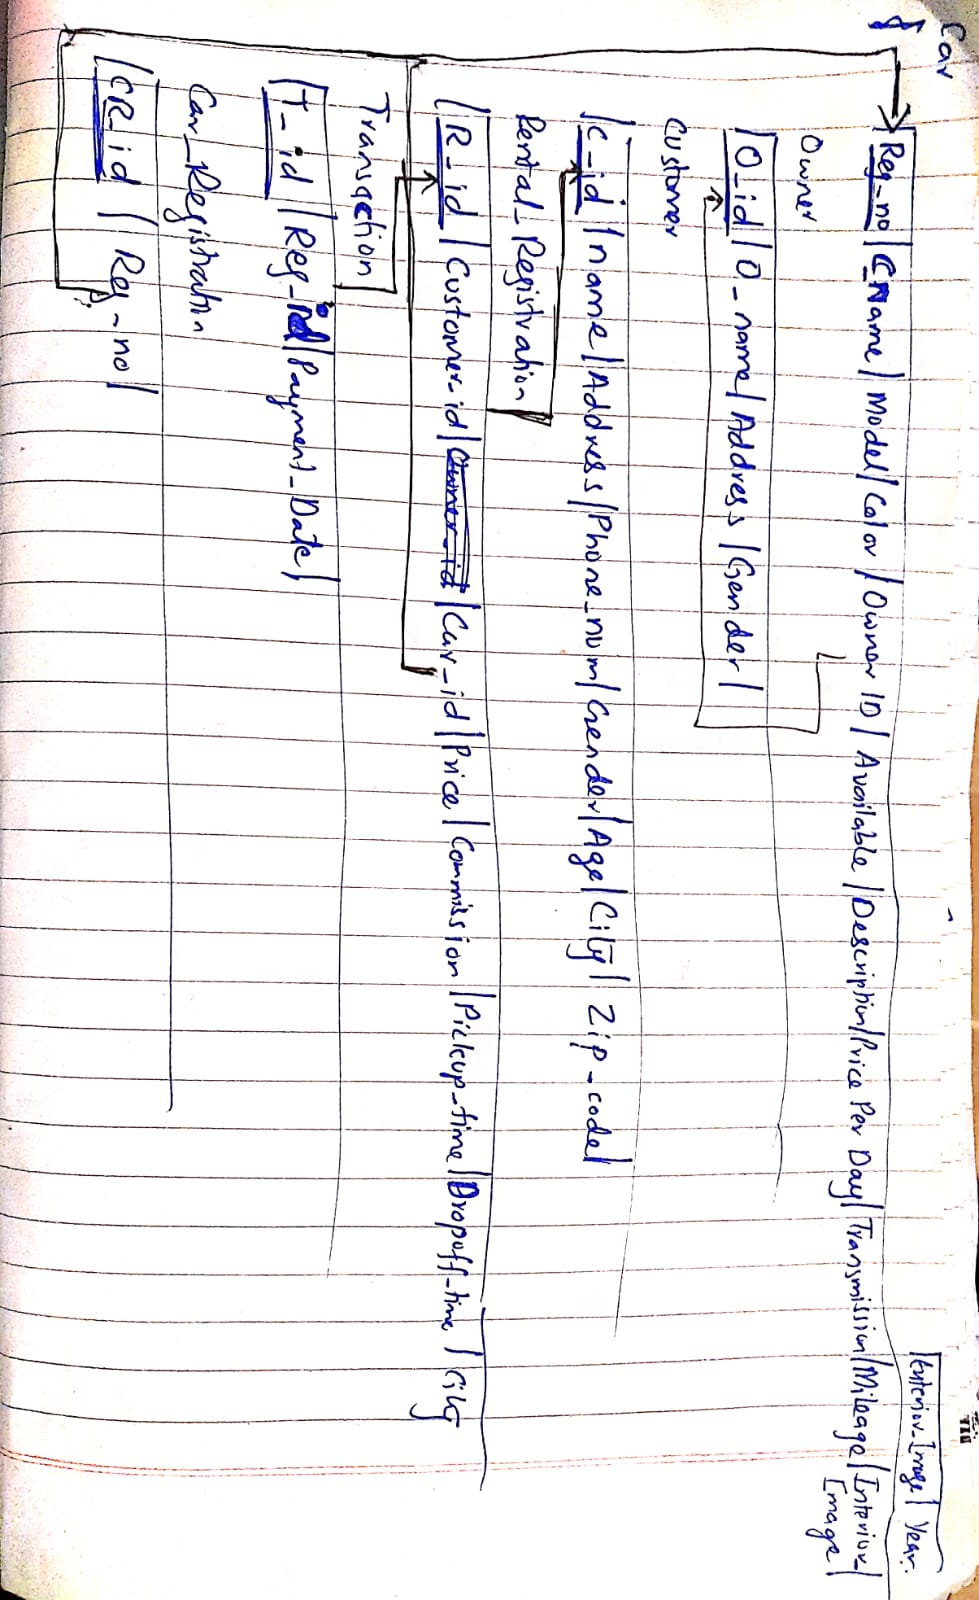 Car
Exterior_Image | Year.
Reg_no | CName | Model | Color | Owner ID | Available | Description | Price Per Day | Transmission | Mileage | Interior_Image |
Owner
| O_id | O_name | Address | Gender |
Customer
| C_id | name | Address | Phone_num | Gender | Age | City | Zip_code |
Rental_Registration
| R_id | Customer_id | Owner_id | Car_id | Price | Commission | Pickup_time | Dropoff_time | City
Transaction
| T_id | Reg_id | Payment_Date |
Car_Registration
| CR_id | Reg_no |